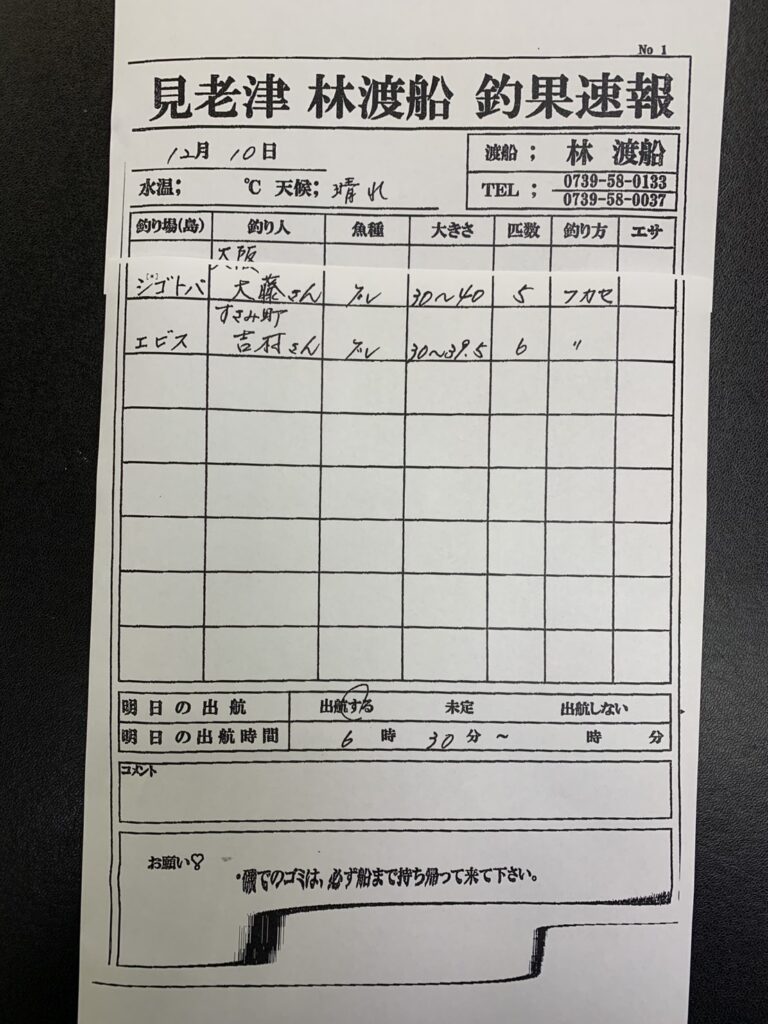 No 1
見老津 林渡船 釣果速報
12月 10日
渡船; 林 渡船
水温; ℃ 天候; 晴れ
TEL; 0739-58-0133
0739-58-0037
釣り場(島) 釣り人 魚種 大きさ 匹数 釣り方 エサ
大阪
シゴトバ 大藤さん グレ 30〜40 5 フカセ
すさみ町
エビス 吉村さん グレ 30〜39.5 6 〃
明日の出航 出航する 未定 出航しない
明日の出航時間 6 時 30 分 〜 時 分
コメント
お願い♡
・磯でのゴミは、必ず船まで持ち帰って来て下さい。